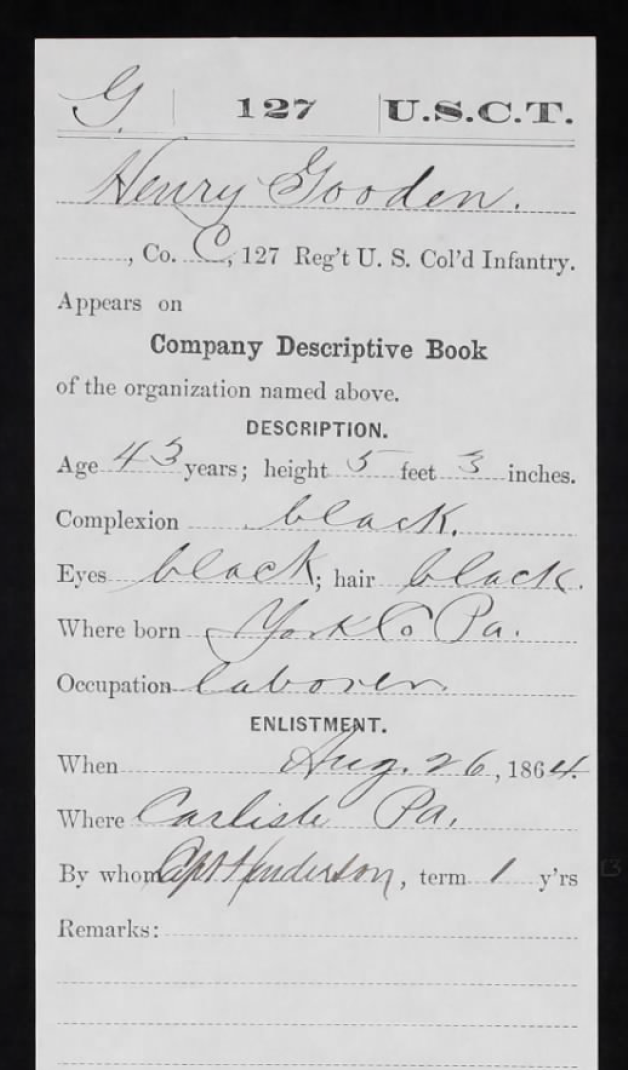 G. 127 U.S.C.T.
Henry Gooden.
, Co. C, 127 Reg't U. S. Col'd Infantry.
Appears on
Company Descriptive Book
of the organization named above.
DESCRIPTION.
Age 43 years; height 5 feet 3 inches.
Complexion black.
Eyes black; hair black.
Where born York Co Pa.
Occupation laborer.
ENLISTMENT.
When Aug. 26, 1864.
Where Carlisle Pa.
By whom Capt Henderson, term 1 y'rs
Remarks: